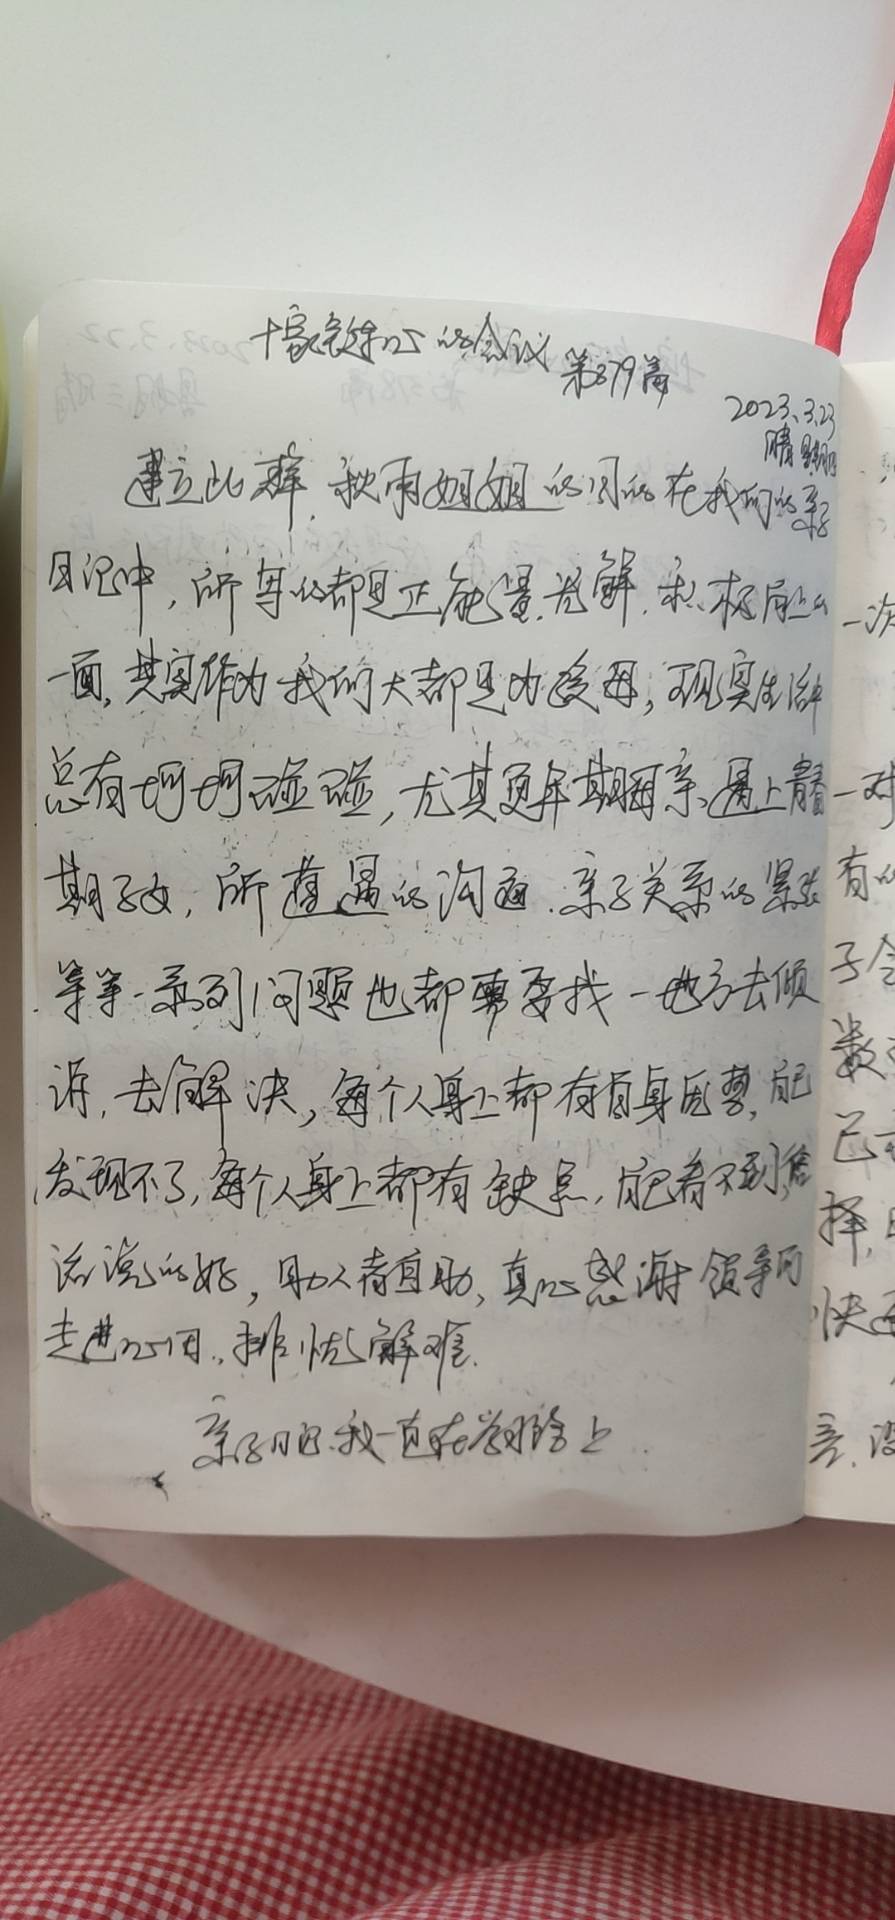 十家连心的会议
第379篇
2023.3.23
晴 星期四
建立此群,秋雨姐姐的目的在我们的亲子
日记中,所写的都是正能量.光鲜.积极向上的
一面,其实作为我们大都是为人母,现实生活中
总有坷坷碰碰,尤其更年期母亲遇上青春
期子女,所遭遇的沟通.亲子关系的紧张
等等一系列问题也都需要找一地方去倾
诉,去解决,每个人身上都有自身优势,自己
发现不了,每个人身上都有缺点,自己看不到,俗
话说的好,助人者自助,真心感谢领导的
走进心田,排忧解难.
亲子日记.我一直在学习路上
一次
一对
有的
子会
数
己
择,
快
言,没